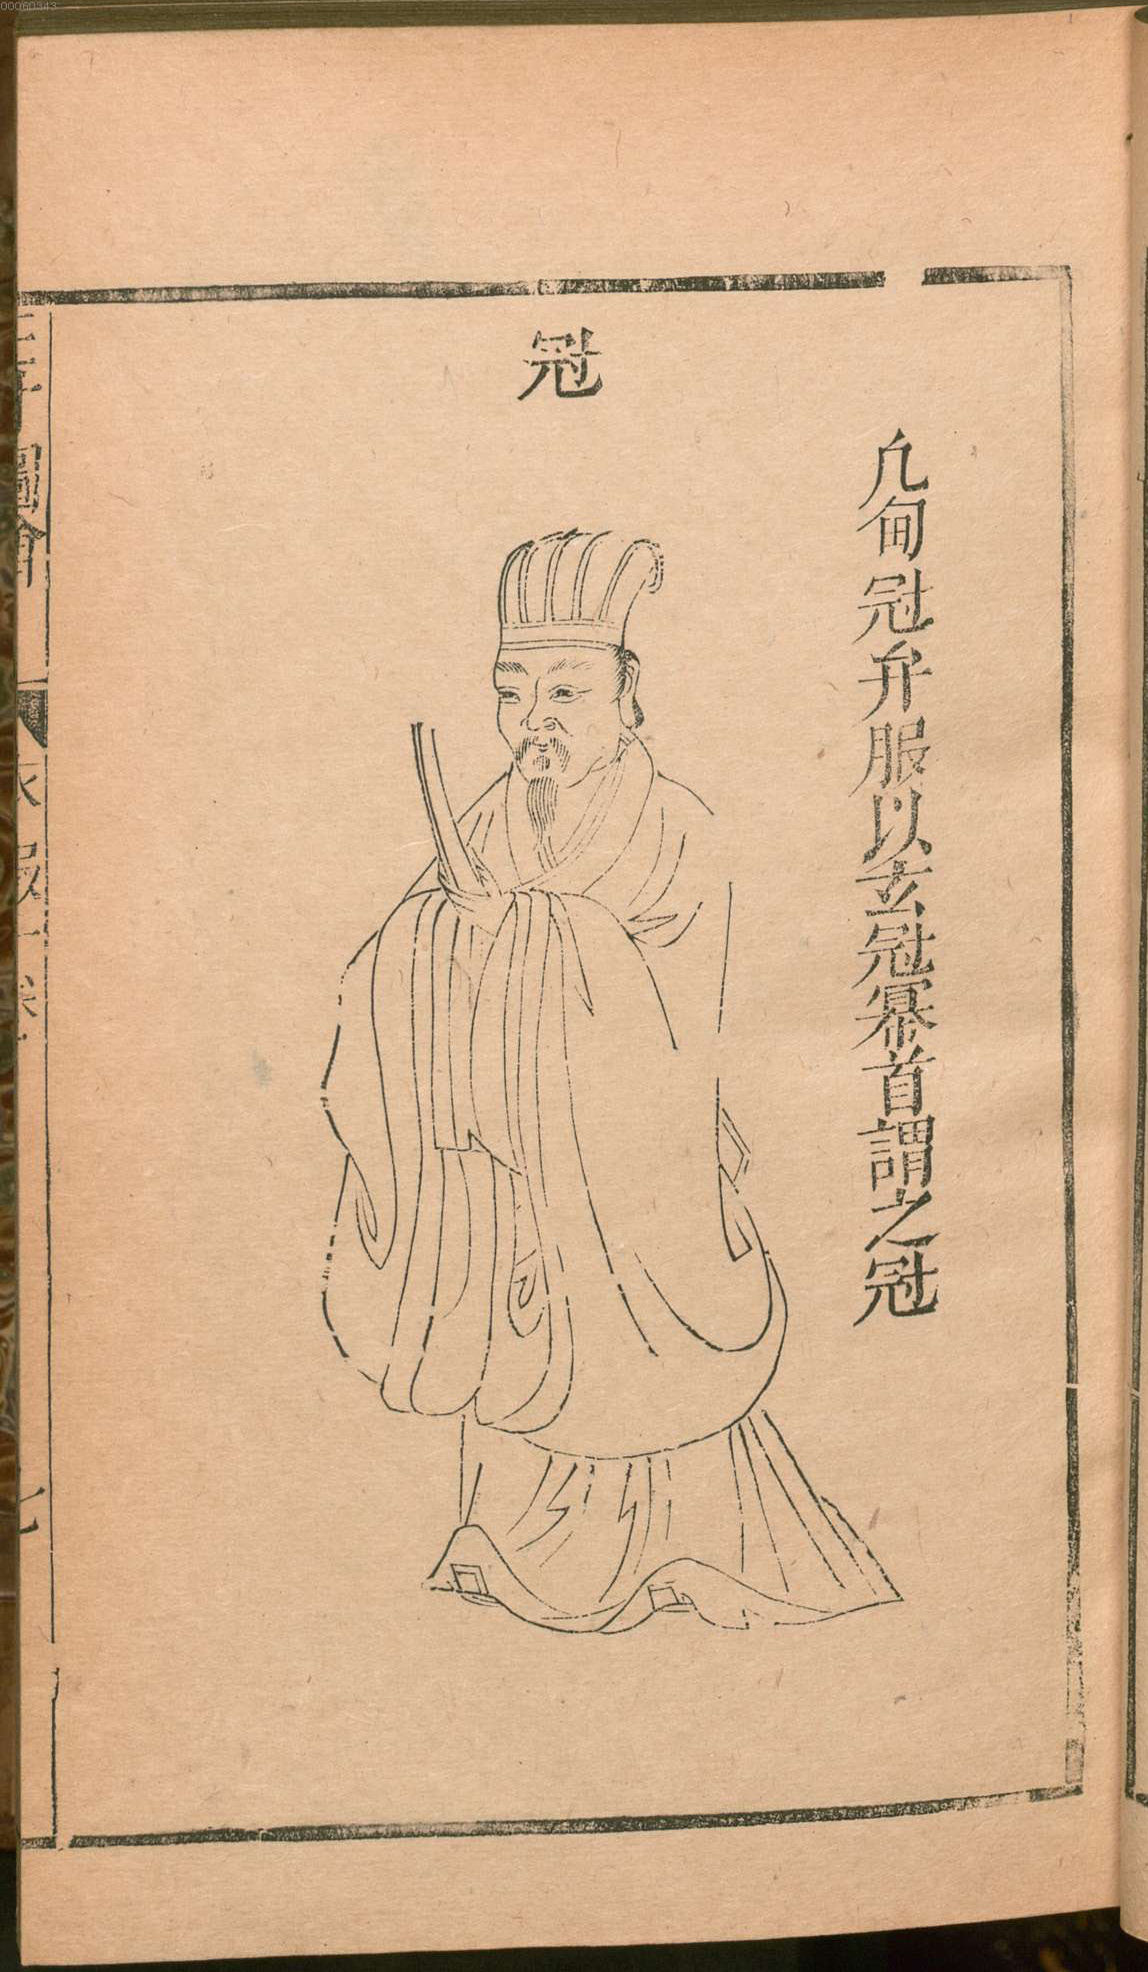 冠
凡甸冠弁服以玄冠冪首謂之冠
三才圖會
衣服一卷
七
00060343